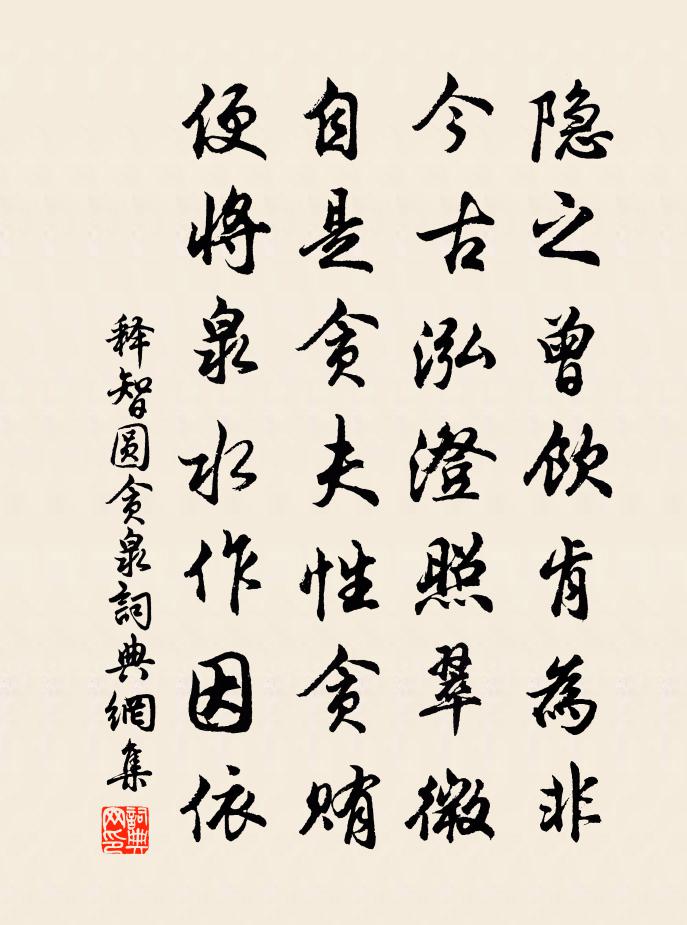 隐之曾饮肯為非
今古泓澄照翠微
自是贪夫性贪贿
便将泉水作因依
释智圆贪泉詞典網集
詞典网印